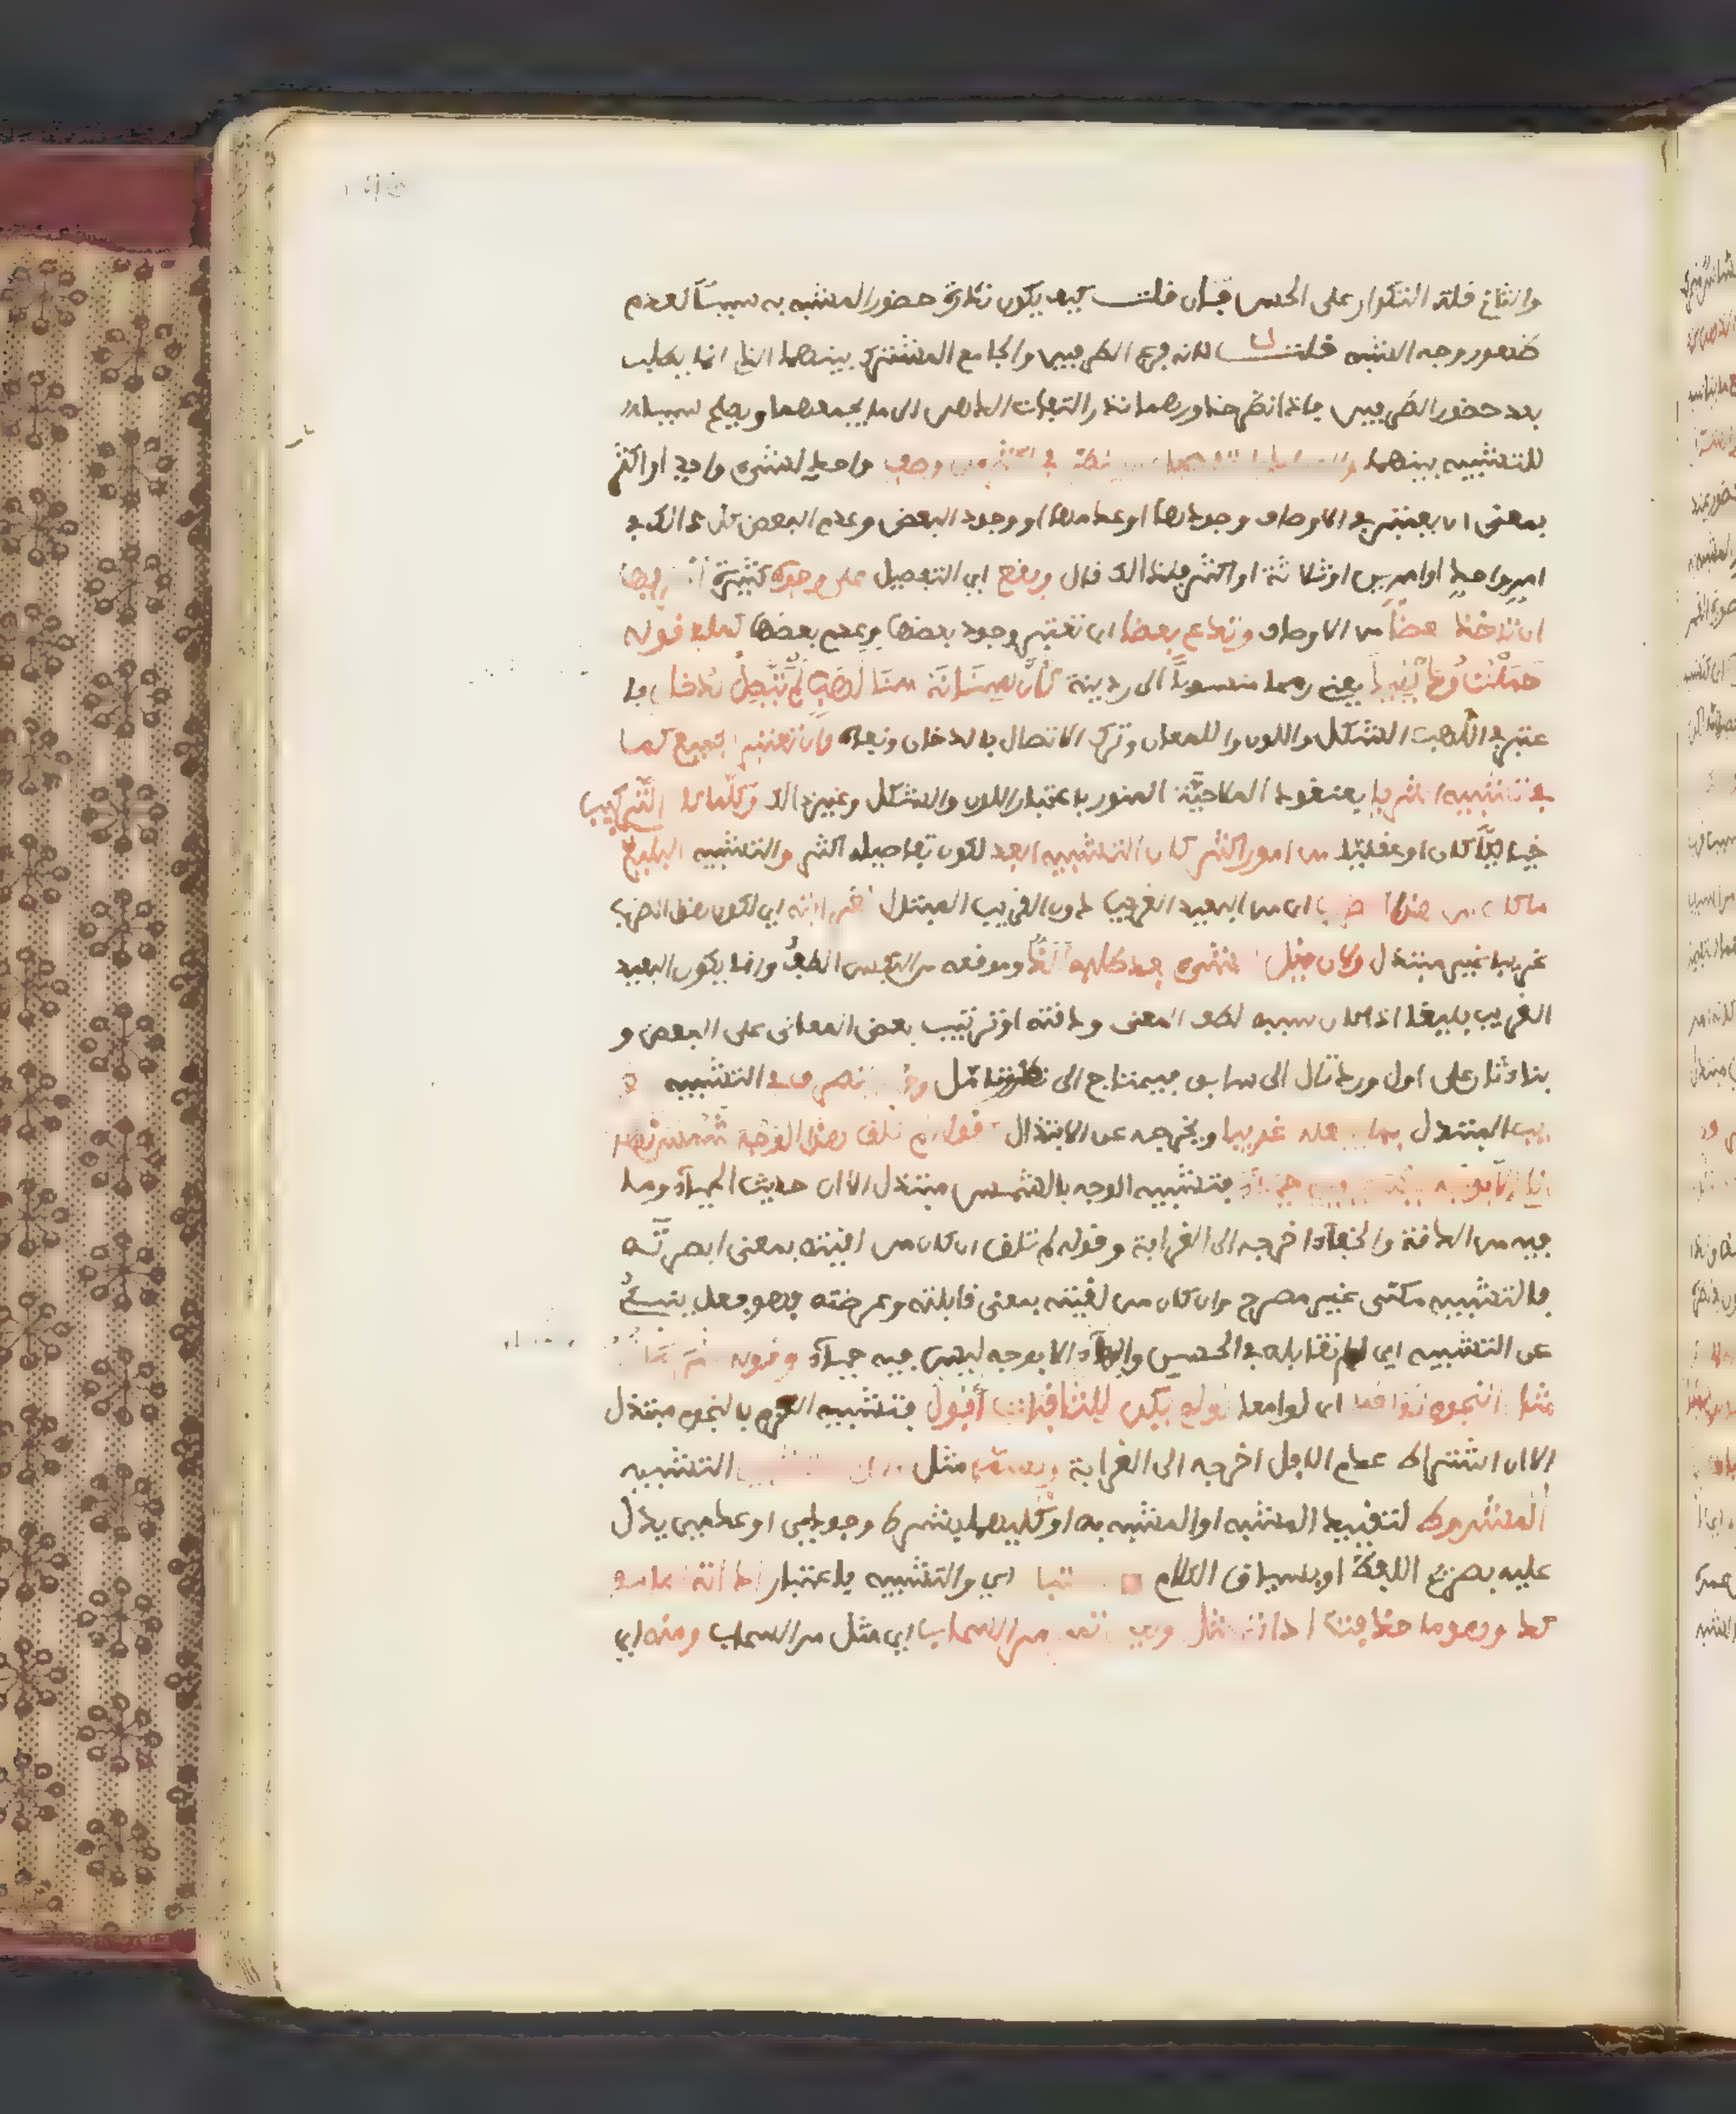 والثاني قلة التكرار على الحس فان قلت كيف يكون ندرة حضور المشبه به سببا لعدم
ظهور وجه الشبه قلت لانه فرع الطرفين والجامع المشترك بينهما الذي انما يطلب
بعد حضور الطرفين فاذا ندر حضورهما ندر التفات الذهن الى ما يجمعهما ويصلح سببا
للتشبيه بينهما والمراد بالتفصيل ان ينظر في اكثر من وصف واحد لشيء واحد او اكثر
بمعنى ان يعتبر في الاوصاف وجودها او عدمها او وجود البعض وعدم البعض كل ذلك في
امر واحد او امرين او ثلاثة او اكثر فلذلك قال ويقع اي التفصيل على وجوه كثيرة اعرفها
ان تاخذ بعضا من الاوصاف وتدع بعضا اي تعتبر وجود بعضها وعدم بعضها كما في قوله
حملت ردينيا يعني رمحا منسوبا الى ردينة كأن سنانه سنا لهب لم يتصل بدخان فا
عتبر في اللهب الشكل واللون واللمعان وترك الاتصال بالدخان ونفاه وان تعتبر الجميع كما
في تشبيه الثريا بعنقود الملاحية المنور باعتبار اللون والشكل وغير ذلك وكلما كان التركيب
خياليا كان او عقليا من امور اكثر كان التشبيه ابعد لكون تفاصيله اكثر والتشبيه البليغ
ما كان من هذا الضرب اي من البعيد الغريب دون القريب المبتذل لغرابته اي لكون هذا الضرب
غريبا غير مبتذل ولان نيل الشيء بعد طلبه الذ وموقعه من النفس الطف وانما يكون البعيد
الغريب بليغا اذا كان سببه لطف المعنى ودقته او ترتيب بعض المعاني على البعض و
بناء ثان على اول ورد تال الى سابق فيحتاج الى نظر وتامل وقد يتصرف في التشبيه
القريب المبتذل بما يجعله غريبا ويخرجه عن الابتذال كقوله لم تلق هذا الوجه شمس نهار
نا الا بوجه ليس فيه حياء فتشبيه الوجه بالشمس مبتذل الا ان حديث الحياء وما
فيه من الدقة والخفاء اخرجه الى الغرابة وقوله لم تلق ان كان من لقيته بمعنى ابصرته
فالتشبيه مكنى غير مصرح وان كان من لقيته بمعنى قابلته وعارضته فهو فعل ينبئ
عن التشبيه اي لم تقابله في الحسن والبهاء الا بوجه ليس فيه حياء وقوله عزماته
مثل النجوم ثواقبا اي لوامعا لو لم يكن للثاقبات افول فتشبيه العزم بالنجم مبتذل
الا ان اشتراط عدم الافول اخرجه الى الغرابة ويسمى مثل هذا التشبيه التشبيه
المشروط لتقييد المشبه او المشبه به او كليهما بشرط وجودي او عدمي يدل
عليه بصريح اللفظ او بسياق الكلام اي والتشبيه باعتبار اداته اما مو
كد وهو ما حذفت اداته مثل وهي تمر مر السحاب اي مثل مر السحاب ومنه اي